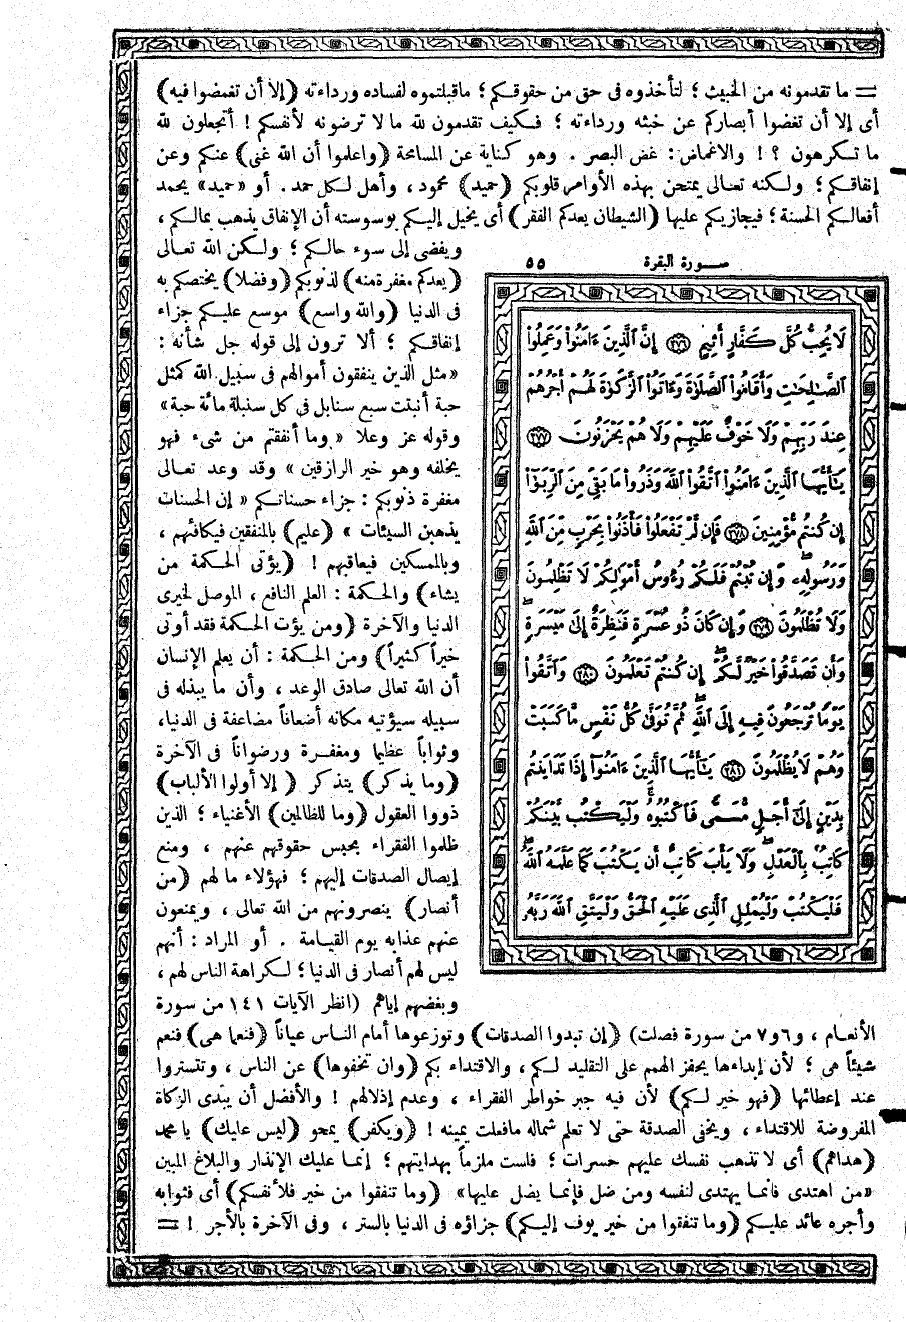 = ما تقدمونه من الخبيث ؛ لتأخذوه فى حق من حقوقكم ؛ ماقبلتموه لفساده ورداءته (إلا أن تغمضوا فيه)
أى إلا أن تغضوا أبصاركم عن خبثه ورداءته ؛ فكيف تقدمون لله ما لا ترضونه لأنفسكم ! أتجعلون لله
ما تكرهون ؟ ! والاغماض : غض البصر . وهو كناية عن المسامحة (واعلموا أن الله غنى) عنكم وعن
إنفاقكم ؛ ولكنه تعالى يمتحن بهذه الأوامر قلوبكم (حميد) محمود ، وأهل لكل حمد . أو «حميد» يحمد
أفعالكم الحسنة ؛ فيجازيكم عليها (الشيطان يعدكم الفقر) أى يخيل إليكم بوسوسته أن الإنفاق يذهب بمالكم ،
ويفضى إلى سوء حالكم ؛ ولكن الله تعالى
(يعدكم مغفرة منه) لذنوبكم (وفضلا) يختصكم به
فى الدنيا (والله واسع) موسع عليكم جزاء
إنفاقكم ؛ ألا ترون إلى قوله جل شأنه :
«مثل الذين ينفقون أموالهم فى سبيل الله كمثل
حبة أنبتت سبع سنابل فى كل سنبلة مائة حبة»
وقوله عز وعلا «وما أنفقتم من شىء فهو
يخلفه وهو خير الرازقين» وقد وعد تعالى
مغفرة ذنوبكم : جزاء حسناتكم «إن الحسنات
يذهبن السيئات» (عليم) بالمنفقين فيكافئهم ،
وبالممسكين فيعاقبهم ! (يؤتى الحكمة من
يشاء) والحكمة : العلم النافع ، الموصل لخيرى
الدنيا والآخرة (ومن يؤت الحكمة فقد أوتى
خيراً كثيراً) ومن الحكمة : أن يعلم الإنسان
أن الله تعالى صادق الوعد ، وأن ما يبذله فى
سبيله سيؤتيه مكانه أضعافاً مضاعفة فى الدنيا،
وثواباً عظيما ومغفرة ورضواناً فى الآخرة
(وما يذكر) يتذكر (إلا أولوا الألباب)
ذووا العقول (وما للظالمين) الأغنياء ؛ الذين
ظلموا الفقراء بحبس حقوقهم عنهم ، ومنع
إيصال الصدقات إليهم ؛ فهؤلاء ما لهم (من
أنصار) ينصرونهم من الله تعالى ، ويمنعون
عنهم عذابه يوم القيامة . أو المراد : أنهم
ليس لهم أنصار فى الدنيا ؛ لكراهة الناس لهم ،
وبغضهم إياهم (انظر الآيات ١٤١ من سورة
سورة البقرة ٥٥
لَا يُحِبُّ كُلَّ كَفَّارٍ أَثِيمٍ ٢٧٦ إِنَّ ٱلَّذِينَ ءَامَنُوا۟ وَعَمِلُوا۟
ٱلصَّـٰلِحَـٰتِ وَأَقَامُوا۟ ٱلصَّلَوٰةَ وَءَاتَوُا۟ ٱلزَّكَوٰةَ لَهُمْ أَجْرُهُمْ
عِندَ رَبِّهِمْ وَلَا خَوْفٌ عَلَيْهِمْ وَلَا هُمْ يَحْزَنُونَ ٢٧٧
يَـٰٓأَيُّهَا ٱلَّذِينَ ءَامَنُوا۟ ٱتَّقُوا۟ ٱللَّهَ وَذَرُوا۟ مَا بَقِىَ مِنَ ٱلرِّبَوٰٓا۟
إِن كُنتُم مُّؤْمِنِينَ ٢٧٨ فَإِن لَّمْ تَفْعَلُوا۟ فَأْذَنُوا۟ بِحَرْبٍ مِّنَ ٱللَّهِ
وَرَسُولِهِۦ وَإِن تُبْتُمْ فَلَكُمْ رُءُوسُ أَمْوَٰلِكُمْ لَا تَظْلِمُونَ
وَلَا تُظْلَمُونَ ٢٧٩ وَإِن كَانَ ذُو عُسْرَةٍ فَنَظِرَةٌ إِلَىٰ مَيْسَرَةٍ
وَأَن تَصَدَّقُوا۟ خَيْرٌ لَّكُمْ إِن كُنتُمْ تَعْلَمُونَ ٢٨٠ وَٱتَّقُوا۟
يَوْمًا تُرْجَعُونَ فِيهِ إِلَى ٱللَّهِ ثُمَّ تُوَفَّىٰ كُلُّ نَفْسٍ مَّا كَسَبَتْ
وَهُمْ لَا يُظْلَمُونَ ٢٨١ يَـٰٓأَيُّهَا ٱلَّذِينَ ءَامَنُوٓا۟ إِذَا تَدَايَنتُم
بِدَيْنٍ إِلَىٰٓ أَجَلٍ مُّسَمًّى فَٱكْتُبُوهُ وَلْيَكْتُب بَّيْنَكُمْ
كَاتِبٌۢ بِٱلْعَدْلِ وَلَا يَأْبَ كَاتِبٌ أَن يَكْتُبَ كَمَا عَلَّمَهُ ٱللَّهُ
فَلْيَكْتُبْ وَلْيُمْلِلِ ٱلَّذِى عَلَيْهِ ٱلْحَقُّ وَلْيَتَّقِ ٱللَّهَ رَبَّهُۥ
الأنعام ، و٦و٧ من سورة فصلت) (إن تبدوا الصدقات) وتوزعوها أمام الناس عياناً (فنعما هى) فنعم
شيئاً هى ؛ لأن إبداءها يحفز الهمم على التقليد لكم ، والاقتداء بكم (وان تخفوها) عن الناس ، وتتستروا
عند إعطائها (فهو خير لكم) لأن فيه جبر خواطر الفقراء ، وعدم إذلالهم ! والأفضل أن يبدى الزكاة
المفروضة للاقتداء ، ويخفى الصدقة حتى لا تعلم شماله مافعلت يمينه ! (ويكفر) يمحو (ليس عليك) يا محمد
(هداهم) أى لا تذهب نفسك عليهم حسرات ؛ فلست ملزماً بهدايتهم ؛ إنما عليك الإنذار والبلاغ المبين
«من اهتدى فانما يهتدى لنفسه ومن ضل فإنما يضل عليها» (وما تنفقوا من خير فلأنفسكم) أى فثوابه
وأجره عائد عليكم (وما تنفقوا من خير يوف إليكم) جزاؤه فى الدنيا بالستر ، وفى الآخرة بالأجر ! =